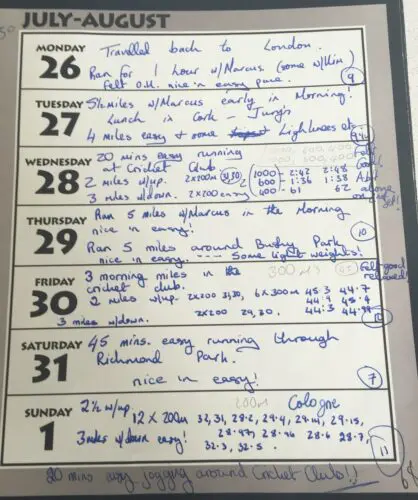 JULY-AUGUST
MONDAY
26
Travelled back to London.
Ran for 1 hour w/Marcus (some w/Kim)
felt O.K. nice 'n easy pace.
9
TUESDAY
27
5½ miles w/Marcus early in Morning!
Lunch in Cork -
4 miles easy & some Light weights
WEDNESDAY
28
20 mins easy running
at Cricket Club.
2 miles w/up. 2x200m
3 miles w/down. 2x200 easy
2
1000 - 2:42 2:48
600 - 1:36 1:38
400 - 61 62
THURSDAY
29
Ran 5 miles w/Marcus in the Morning
nice in easy!
10
Ran 5 miles around Bushy Park
nice in easy. ---- Some light weights!
FRIDAY
30
3 morning miles in the
cricket club.
300 MS
felt good
relaxed!
2 miles w/up. 2x200 31,30, 6x300m 45.3 44.7
44.9 45.4
2x200 29,30. 44.3
3 miles w/down.
SATURDAY
31
45 mins. easy running through
Richmond Park.
nice in easy!
7
SUNDAY
1
2½ w/up
200m
Cologne
12 x 200m 32, 31, 28.2, 29.4, 29.14, 29.15,
3 miles w/down easy! 28.97, 28.96 28.6 28.7,
32.3, 32.5.
11
20 mins easy jogging around Cricket Club!!